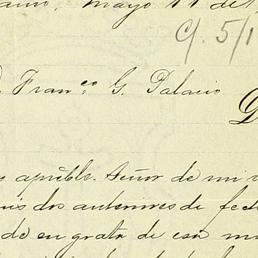 Mayo 11 de
C/. 5/1
Fran.co G. Palacio
D
apreble. Señor de mi
dos anteriores de fech
do en grata de esa m